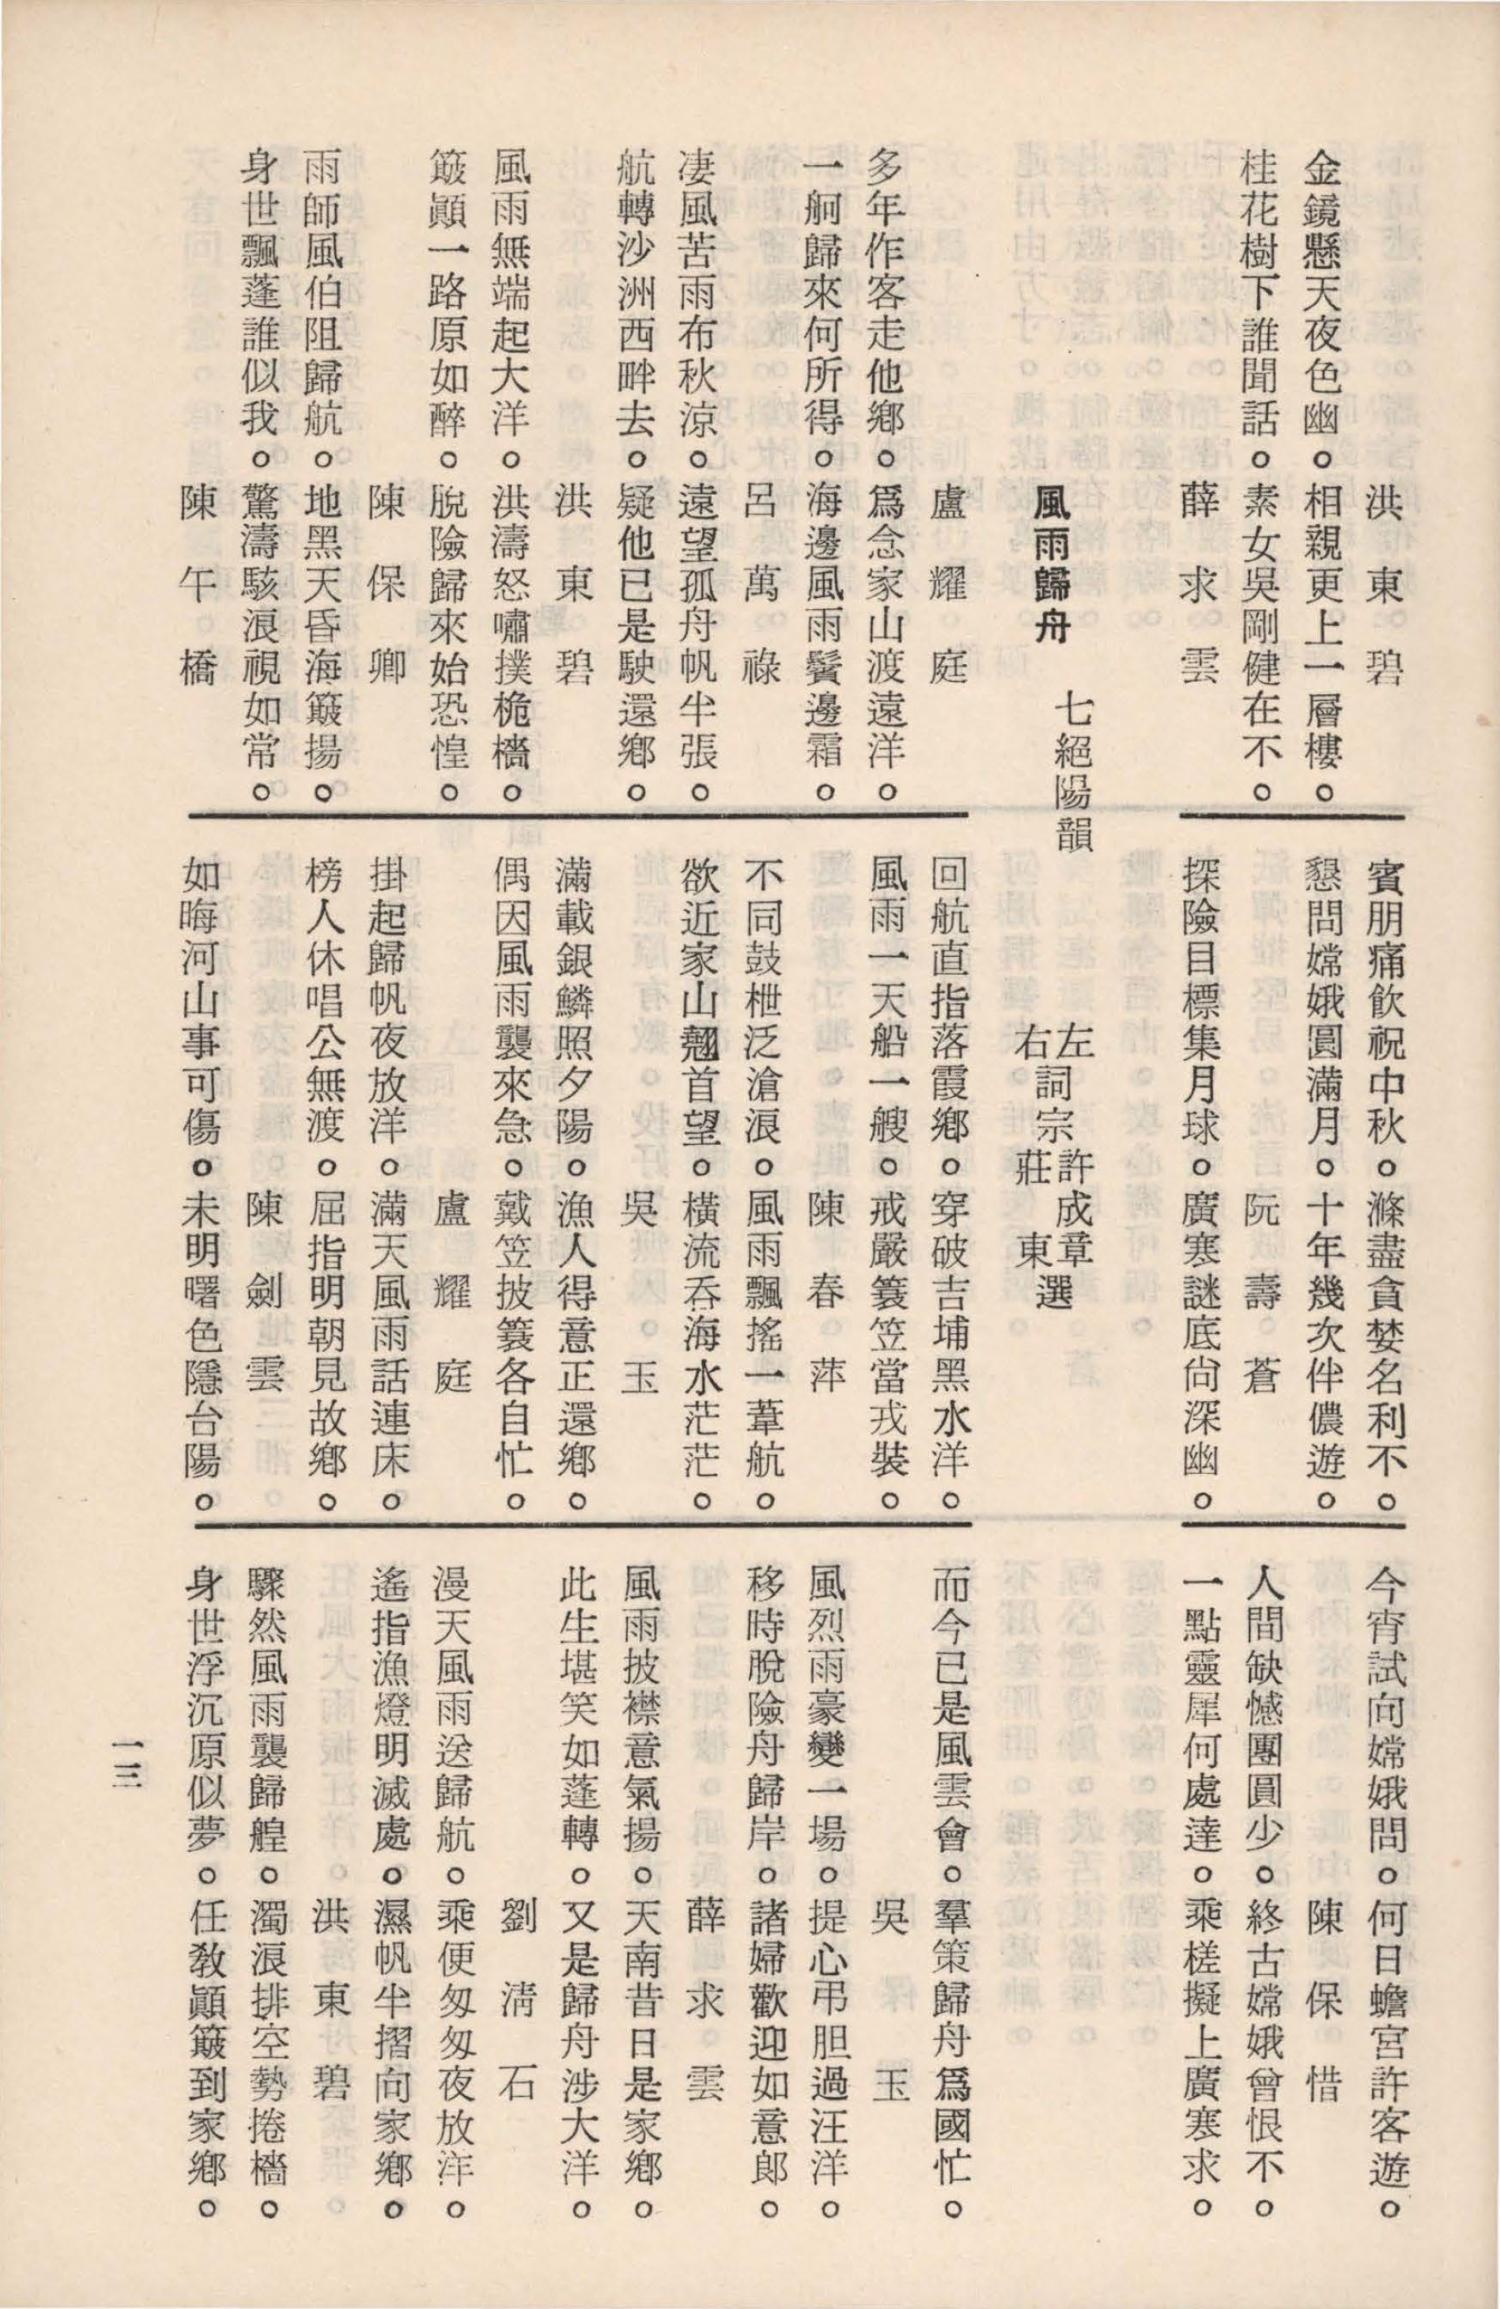 洪東碧
金鏡懸天夜色幽。相親更上一層樓。
桂花樹下誰聞話。素女吳剛健在不。
薛求雲
賓朋痛飲祝中秋。滌盡貪婪名利不。
懇問嫦娥圓滿月。十年幾次伴儂遊。
阮壽蒼
探險目標集月球。廣寒謎底尙深幽。
今宵試向嫦娥問。何日蟾宮許客遊。
陳保惜
人間缺憾團圓少。終古嫦娥曾恨不。
一點靈犀何處達。乘槎擬上廣寒求。
風雨歸舟 七絕陽韻
左詞宗許成章
右詞宗莊東選
盧耀庭
多年作客走他鄉。爲念家山渡遠洋。
一舸歸來何所得。海邊風雨鬢邊霜。
呂萬祿
凄風苦雨布秋涼。遠望孤舟帆半張。
航轉沙洲西畔去。疑他已是駛還鄉。
洪東碧
風雨無端起大洋。洪濤怒嘯撲桅檣。
簸顚一路原如醉。脫險歸來始恐惶。
陳保卿
雨師風伯阻歸航。地黑天昏海簸揚。
身世飄蓬誰似我。驚濤駭浪視如常。
陳午橋
回航直指落霞鄉。穿破吉埔黑水洋。
風雨一天船一艘。戒嚴簑笠當戎裝。
陳春萍
不同鼓枻泛滄浪。風雨飄搖一葦航。
欲近家山翹首望。橫流吞海水茫茫。
吳玉
滿載銀鱗照夕陽。漁人得意正還鄉。
偶因風雨襲來急。戴笠披簑各自忙。
盧耀庭
掛起歸帆夜放洋。滿天風雨話連床。
榜人休唱公無渡。屈指明朝見故鄉。
陳劍雲
如晦河山事可傷。未明曙色隱台陽。
而今已是風雲會。羣策歸舟爲國忙。
吳玉
風烈雨豪變一場。提心弔胆過汪洋。
移時脫險舟歸岸。諸婦歡迎如意郎。
薛求雲
風雨披襟意氣揚。天南昔日是家鄉。
此生堪笑如蓬轉。又是歸舟涉大洋。
劉淸石
漫天風雨送歸航。乘便匆匆夜放洋。
遙指漁燈明滅處。濕帆半摺向家鄉。
洪東碧
驟然風雨襲歸艎。濁浪排空勢捲檣。
身世浮沉原似夢。任教顚簸到家鄉。
一三